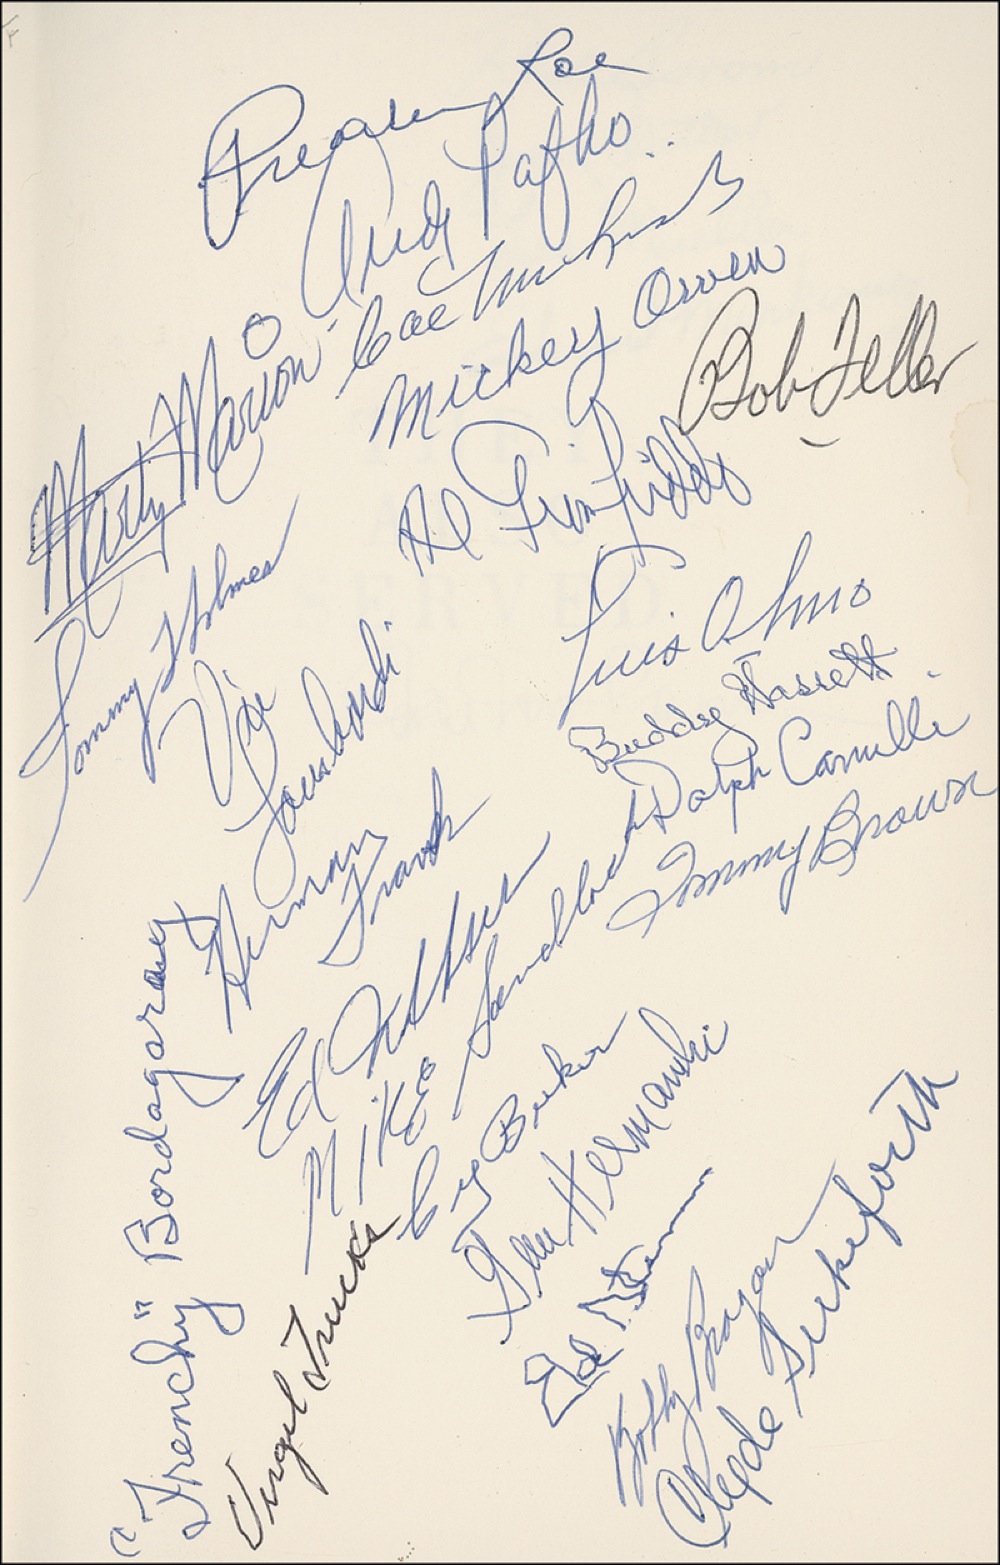 Preacher Roe
Andy Pafko
Cal McLish
Mickey Owen
Bob Feller
Marty Marion
Al Gionfriddo
Tommy Holmes
Luis Olmo
Vic Lombardi
Buddy Hassett
Dolph Camilli
Tommy Brown
Herman Franks
Ed
Mike Sandlock
"Frenchy" Bordagaray
Cy Buker
Gene Hermanski
Virgil Trucks
Ed
Bobby Bragan
Clyde Sukeforth
SERVED